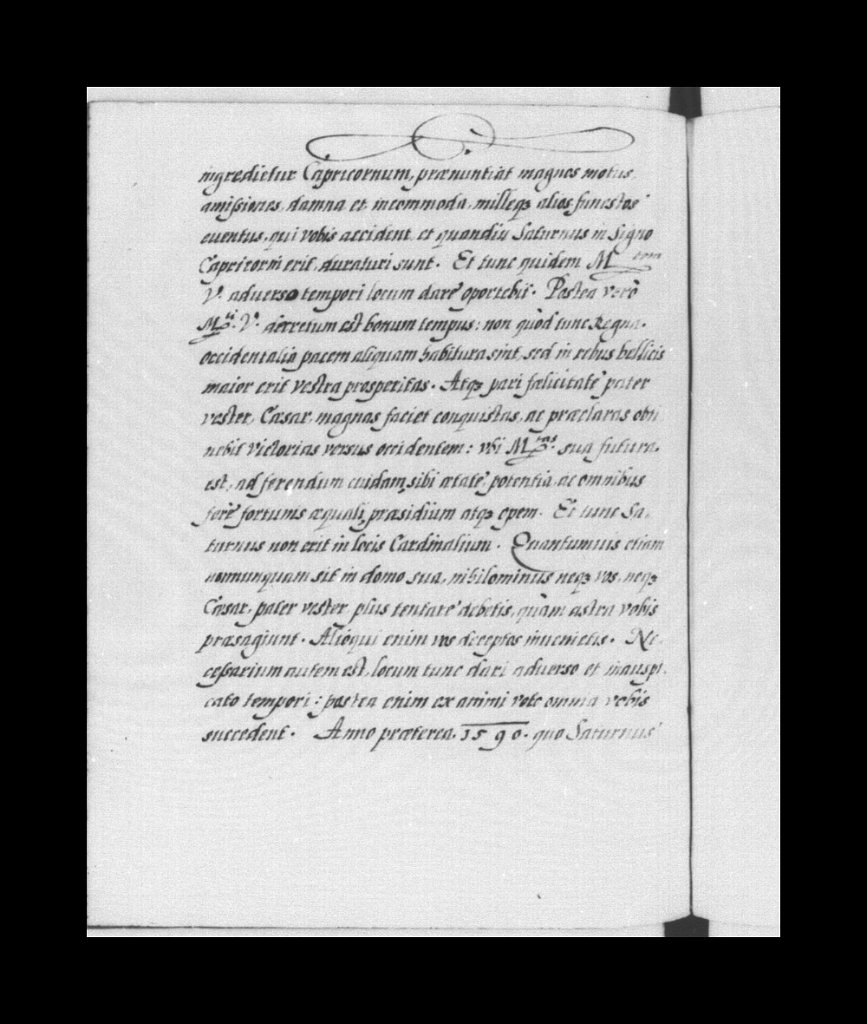 ingredietur Capricornum, prænuntiat magnos motus,
amissiones, damna et incommoda, milleqꝫ alios funestos
euentus, qui vobis accident, et quandiu Saturnus in Signo
Capricorni erit, duraturi sunt. Et tunc quidem M.tem
V. aduerso tempori locum dare oportebit. Postea verò
M.ti V. decretum est bonum tempus: non quòd tunc Regna
occidentalia pacem aliquam habitura sint, sed in rebus bellicis
maior erit vestra prosperitas. Atqꝫ pari fœlicitate pater
vester, Cæsar, magnas faciet conquistas, ac præclaras obti
nebit victorias versus occidentem: vbi M.tas sua futura
est, ad ferendum cuidam, sibi ætate, potentia, ac omnibus
ferè fortunis æquali, præsidium atqꝫ opem. Et tunc Sa-
turnus non erit in locis Cardinalium. Quantumuis etiam
nonnunquam sit in domo sua, nihilominus neqꝫ vos, neqꝫ
Cæsar, pater vester plus tentare debetis, quàm astra vobis
præsagiunt. Alioqui enim vos deceptos inuenietis. Ne-
cessarium autem est, locum tunc dari aduerso et inauspi-
cato tempori: postea enim ex animi voto omnia vobis
succedent. Anno præterea, 1590. quo Saturnus